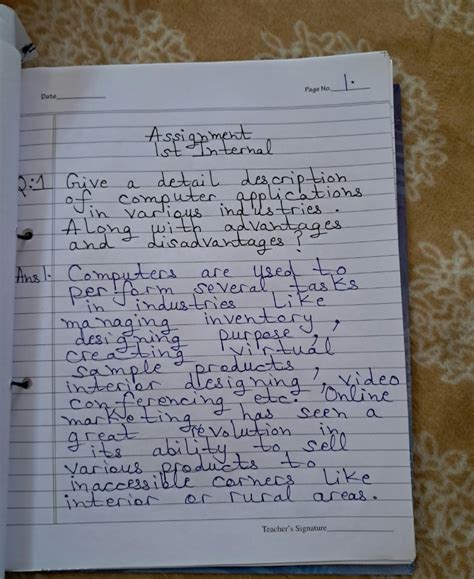 Date
Page No. 1.
Assignment
1st Internal
Q:1 Give a detail description
of computer applications
in various industries.
Along with advantages
and disadvantages?
Ans 1. Computers are used to
perform several tasks
in industries like
managing inventory,
designing purpose,
creating virtual
sample products,
interior designing, video
conferencing etc. Online
marketing has seen a
great revolution in
its ability to sell
various products to
inaccessible corners like
interior or rural areas.
Teacher's Signature